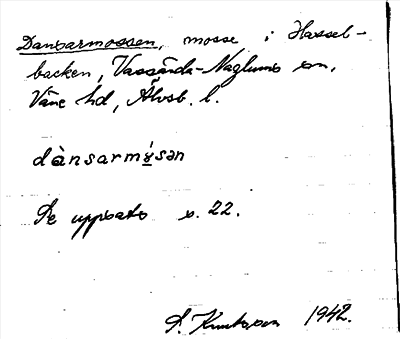 Dansarmossen, mosse i Hassel-
backen, Vassända-Naglums sn,
Väne hd, Älvsb. l.
dànsarmɤ́sən
Se uppsats s. 22.
S. 1942.